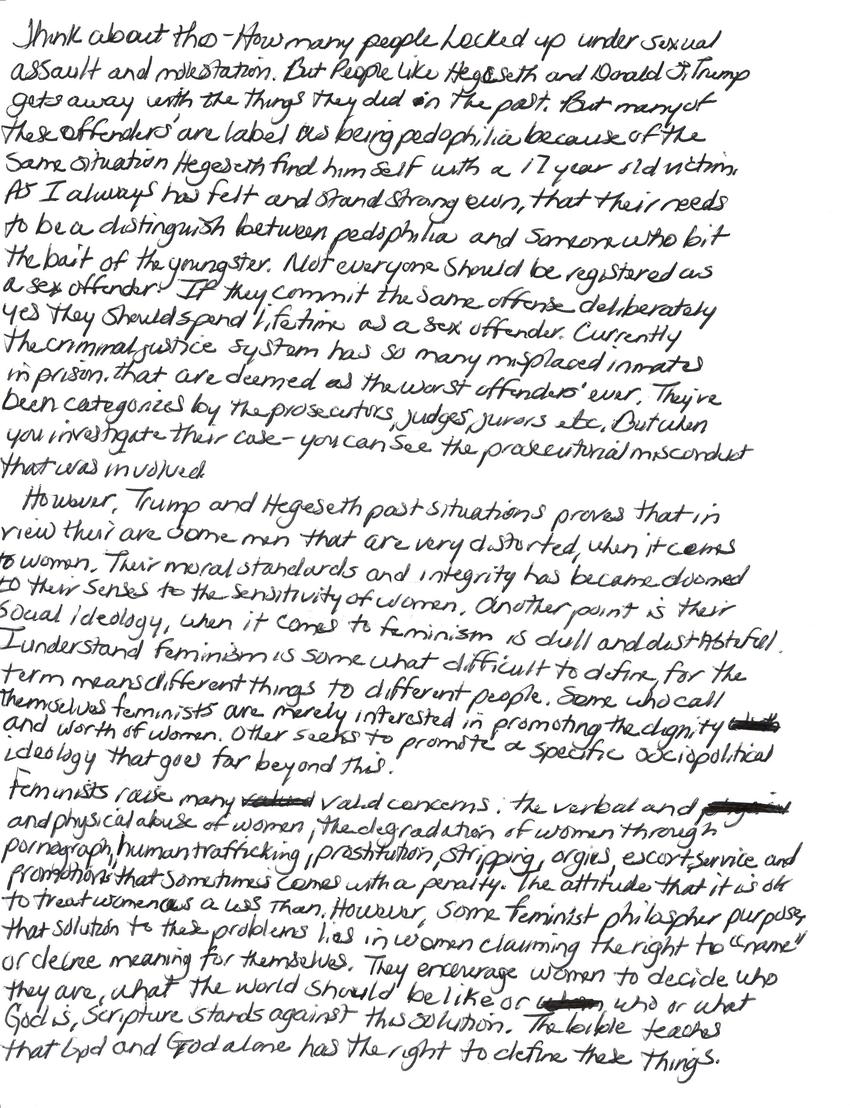 Think about this-How many people Locked up under sexual
assault and molestation. But People like Hegeseth and Donald J. Trump
gets away with the things they did in the past. But many of
these offenders' are label as being pedophilia because of the
same situation Hegeseth find him self with a 17 year old victim.
As I always has felt and stand strong own, that their needs
to be a distinguish between pedophilia and someone who bit
the bait of the youngster. Not everyone should be registered as
a sex offender. If they commit the same offense deliberately
yes they should spend lifetime as a sex offender. Currently
the criminal justice system has so many misplaced inmates
in prison. that are deemed as the worst offenders' ever. They're
been categorizes by the prosecutors, judges, jurors etc. But when
you investigate their case- you can see the prosecutorial misconduct
that was involved.
However, Trump and Hegeseth past situations proves that in
view their are some men that are very distorted, when it comes
to women. Their moral standards and integrity has became doomed
to their senses to the sensitivity of women. Another point is their
social ideology, when it comes to feminism is dull and distasteful.
I understand feminism is some what difficult to define, for the
term means different things to different people. Some who call
themselves feminists are merely interested in promoting the dignity
and worth of women. Other seeks to promote a specific sociopolitical
ideology that goes far beyond this.
Feminists raise many valid concerns: the verbal and
and physical abuse of women, the degradation of women through
pornograph, human trafficking, prostitution, stripping, orgies, escort service and
promotions' that sometimes comes with a penalty. The attitude that it is ok
to treat women as a less than. However, some feminist philospher purposes
that solution to these problems lies in women claiming the right to "name"
or decree meaning for themselves. They encourage women to decide who
they are, what the world should be like or who or what
God is, Scripture stands against this solution. The bible teaches
that God and God alone has the right to define these things.